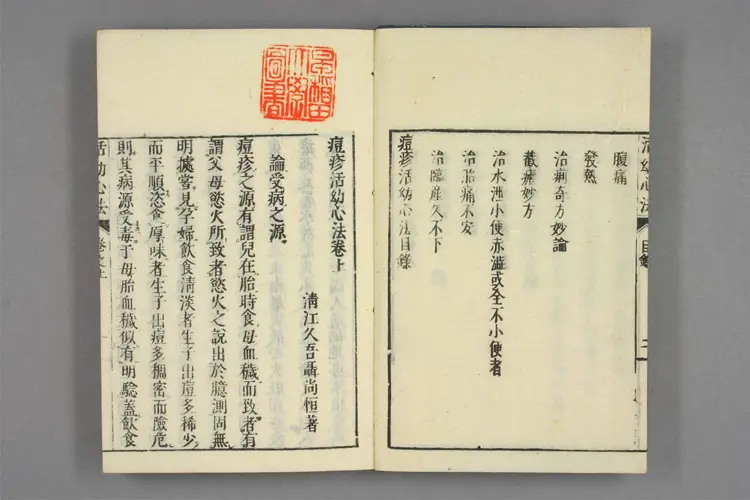 腹痛
發熱
治痢奇方妙論
截瘧妙方
治水泄小便赤澁或全不小便者
治胎痛不安
治臨産久不下
痘疹活幼心法目錄
活幼心法
目錄
二
痘疹活幼心法卷上
清江久吾聶尚恒著
論受病之源
痘疹之源有謂兒在胎時食母血穢而致者有
謂父母慾火所致者慾火之說出於臆測固無
明據嘗見孕婦飲食清淡者生子出痘多稀少
而平順恣食厚味者生子出痘多稠密而險危
則其病源受毒于母胎血穢似有明驗蓋飲食
活幼心法
卷之上